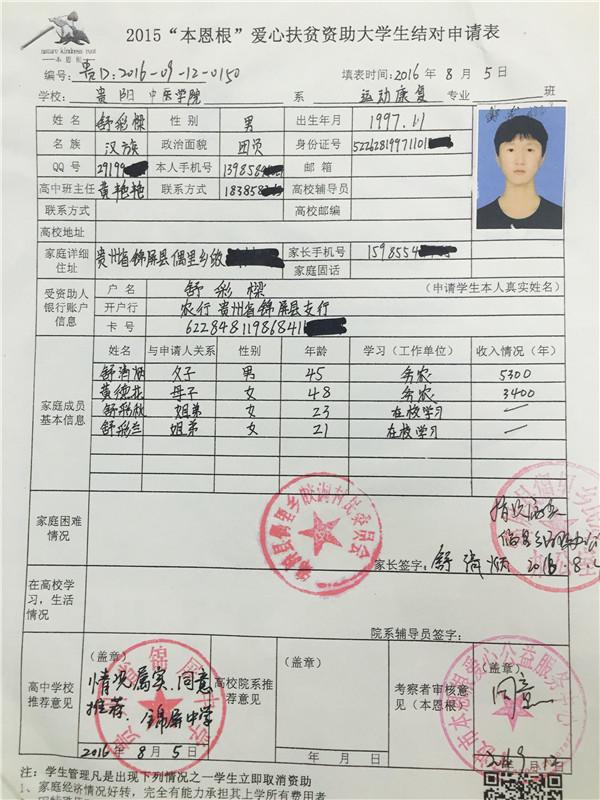 2015“本恩根”爱心扶贫资助大学生结对申请表
nature kindness root
本恩根
编号: 贵D:2016-09-12-0150 填表时间:2016年8月5日
学校: 贵阳中医学院 系 运动康复 专业 班
姓名 舒彩樑 性别 男 出生年月 1997.11
名族 汉族 政治面貌 团员 身份证号 52262819971101
QQ号 29194 本人手机号 139858 邮箱
高中班主任 黄艳艳 联系方式 183858 高校辅导员
联系方式 高校邮编
高校地址
家庭详细住址 贵州省锦屏县偶里乡 家长手机号 159855
家庭固话
受资助人银行账户信息 户名 舒彩樑 (申请学生本人真实姓名)
开户行 农行贵州省锦屏县支行
卡号 62284811986841
家庭成员基本信息 姓名 与申请人关系 性别 年龄 学习(工作单位) 收入情况(年)
舒 父子 男 45 务农 5300
黄德花 母子 女 48 务农 3400
舒彩秋 姐弟 女 23 在校学习
舒彩兰 姐弟 女 21 在校学习
家庭困难情况
情况
家长签字: 舒 2016.8.
在高校学习,生活情况
院系辅导员签字:
高中学校推荐意见 (盖章) 情况属实,同意推荐. 锦屏中学
2016年8月5日
高校院系推荐意见 (盖章)
年 月 日
考察者审核意见(本恩根) (盖章) 同意
月 日
注:学生管理凡是出现下列情况之一学生立即取消资助
1、家庭经济情况好转,完全有能力承担其上学所有费用者